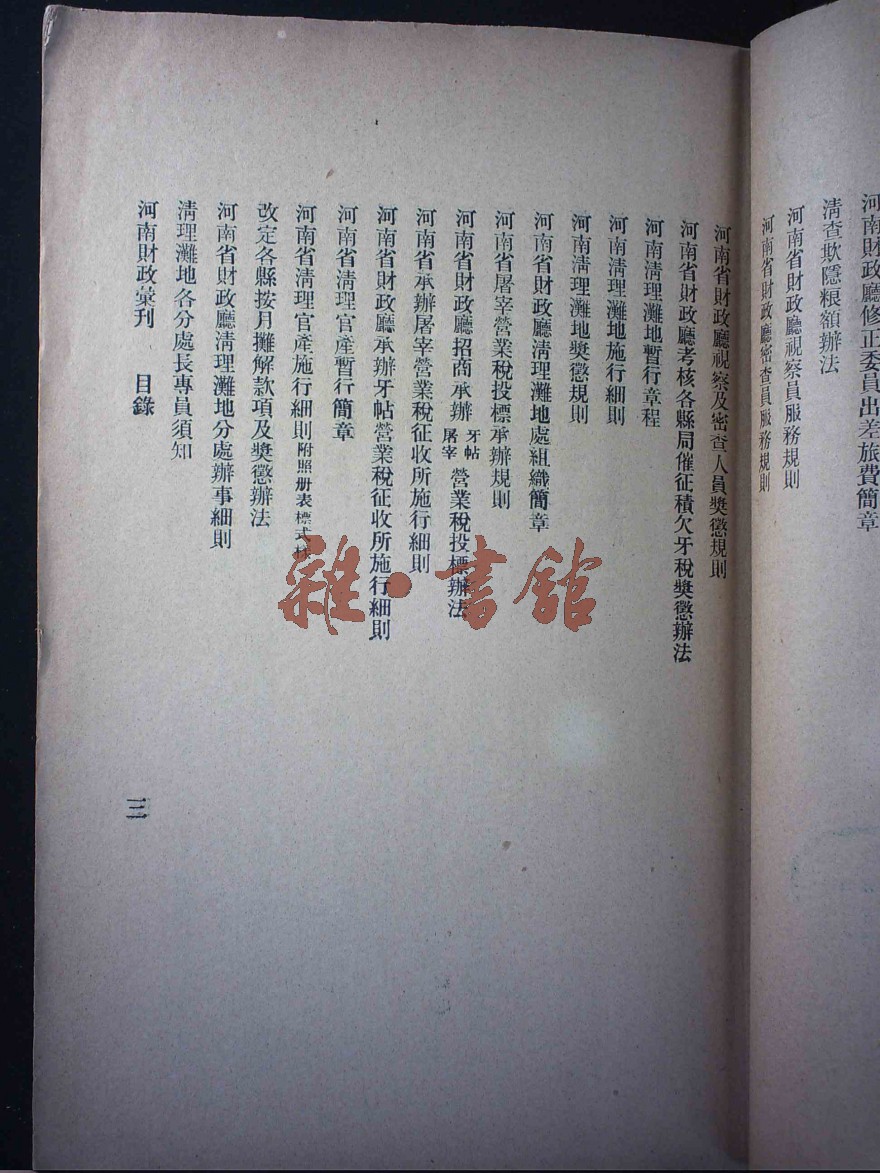 河南財政廳修正委員出差旅費簡章
清查欺隱粮額辦法
河南省財政廳視察員服務規則
河南省財政廳密查員服務規則
河南省財政廳視察及密查人員獎懲規則
河南省財政廳考核各縣局催征積欠牙稅獎懲辦法
河南清理灘地暫行章程
河南清理灘地施行細則
河南清理灘地獎懲規則
河南省財政廳清理灘地處組織簡章
河南省屠宰營業稅投標承辦規則
河南省財政廳招商承辦牙帖屠宰營業稅投標辦法
河南省承辦屠宰營業稅征收所施行細則
河南省財政廳承辦牙帖營業稅征收所施行細則
河南省清理官產暫行簡章
河南省清理官產施行細則附照册表標式樣
改定各縣按月攤解款項及獎懲辦法
河南省財政廳清理灘地分處辦事細則
清理灘地各分處長專員須知
河南財政彙刊 目錄
三
雜·書館